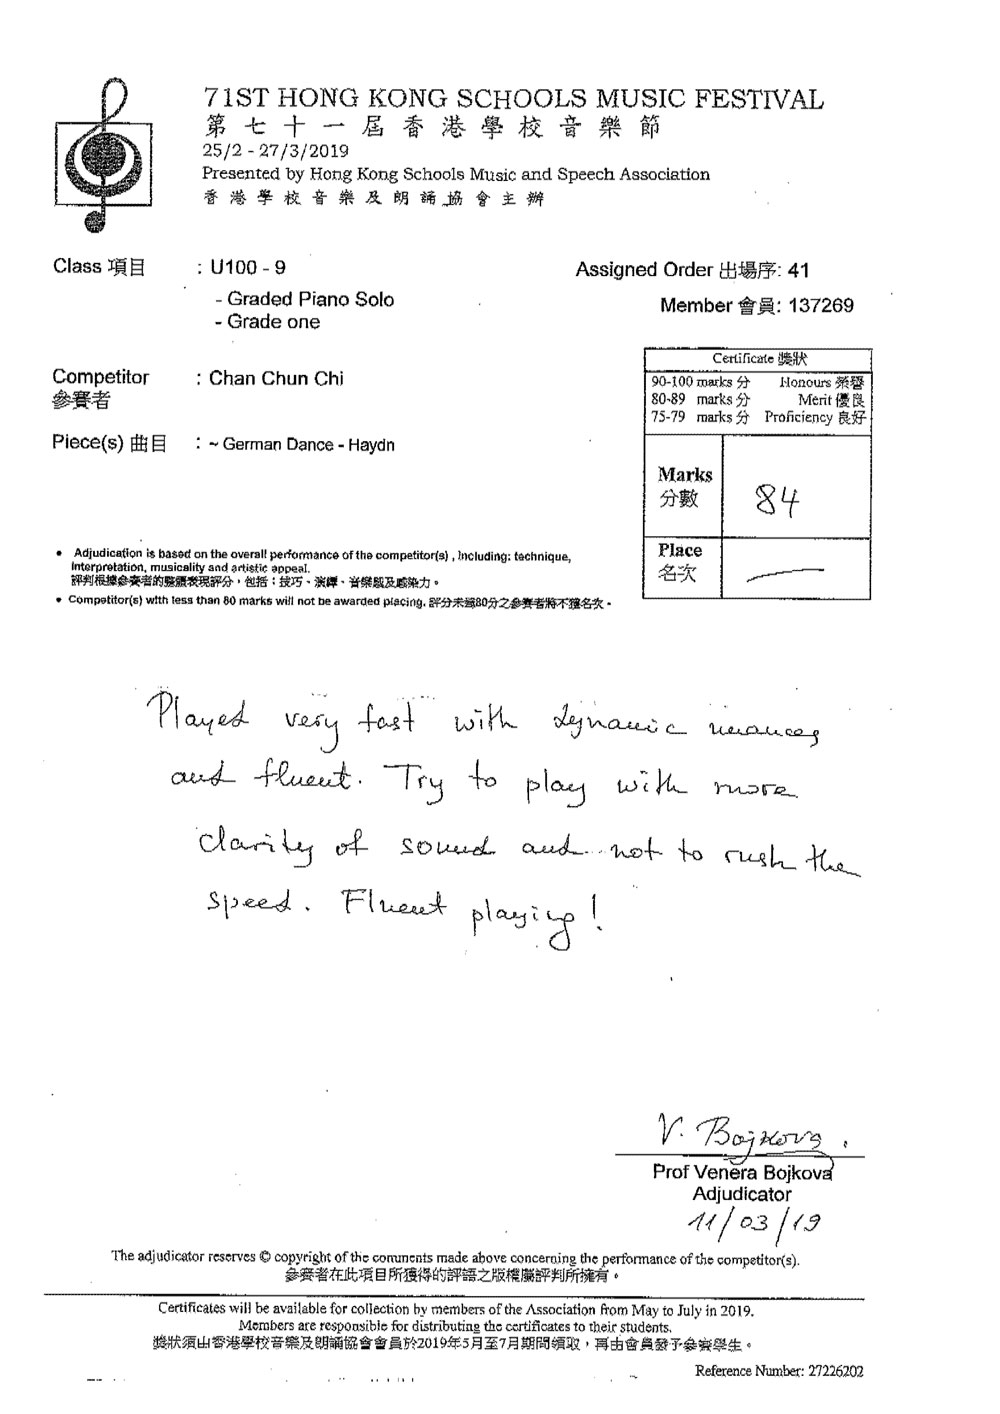 71ST HONG KONG SCHOOLS MUSIC FESTIVAL
第七十一屆香港學校音樂節
25/2 - 27/3/2019
Presented by Hong Kong Schools Music and Speech Association
香港學校音樂及朗誦協會主辦
Class 項目 : U100 - 9
Assigned Order 出場序: 41
- Graded Piano Solo
- Grade one
Member 會員: 137269
Competitor : Chan Chun Chi
參賽者
Piece(s) 曲目 : ~ German Dance - Haydn
Certificate 獎狀
90-100 marks 分 Honours 榮譽
80-89 marks 分 Merit 優良
75-79 marks 分 Proficiency 良好
Marks 84
分數
Place —
名次
• Adjudication is based on the overall performance of the competitor(s) , Including: technique,
Interpretation, musicality and artistic appeal.
評判根據參賽者的整體表現評分，包括：技巧、演繹、音樂感及感染力。
• Competitor(s) with less than 80 marks will not be awarded placing. 評分未達80分之參賽者將不獲名次。
Played very fast with dynamic nuances
and fluent. Try to play with more
clarity of sound and not to rush the
speed. Fluent playing!
V. Bojkova.
Prof Venera Bojkova
Adjudicator
11/03/19
The adjudicator reserves © copyright of the comments made above concerning the performance of the competitor(s).
參賽者在此項目所獲得的評語之版權屬評判所擁有。
Certificates will be available for collection by members of the Association from May to July in 2019.
Members are responsible for distributing the certificates to their students.
獎狀須由香港學校音樂及朗誦協會會員於2019年5月至7月期間領取，再由會員發予參賽學生。
Reference Number: 27226202